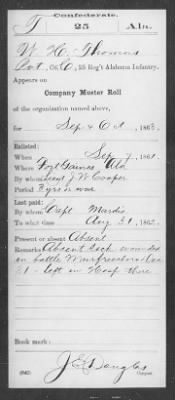 Confederate.
T 25 Ala.
W. H. Thomas
Pvt, Co. C, 25 Reg't Alabama Infantry.
Appears on
Company Muster Roll
of the organization named above,
for Sep & Oct, 1863.
Enlisted:
When Sep 7, 1861.
Where Fort Gaines Ala
By whom J. W. Cooper
Period 3 yrs or war
Last paid:
By whom Capt
To what time Aug 31, 1862.
Present or absent Absent
Remarks: Absent sick wounded
in battle Murfreesboro Dec
31 - left in Hosp there
Book mark:
J. E. Douglas
(642) Copyist.